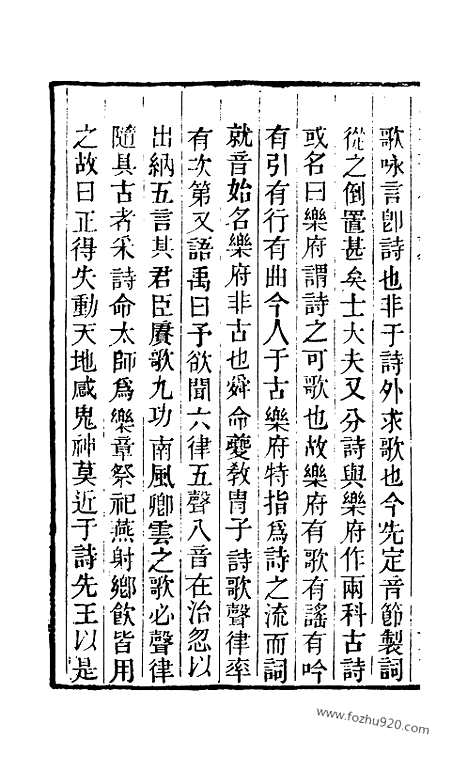 歌咏言卽詩也非于詩外求歌也今先定音節製詞
從之倒置甚矣士大夫又分詩與樂府作兩科古詩
或名曰樂府謂詩之可歌也故樂府有歌有謠有吟
有引有行有曲今人于古樂府特指爲詩之流而詞
就音始名樂府非古也舜命夔敎胄子詩歌聲律率
有次第又語禹曰予欲聞六律五聲八音在治忽以
出納五言其君臣賡歌九功南風卿雲之歌必聲律
隨具古者采詩命太師爲樂章祭祀燕射鄉飮皆用
之故曰正得失動天地感鬼神莫近于詩先王以是
www.fozhu920.com